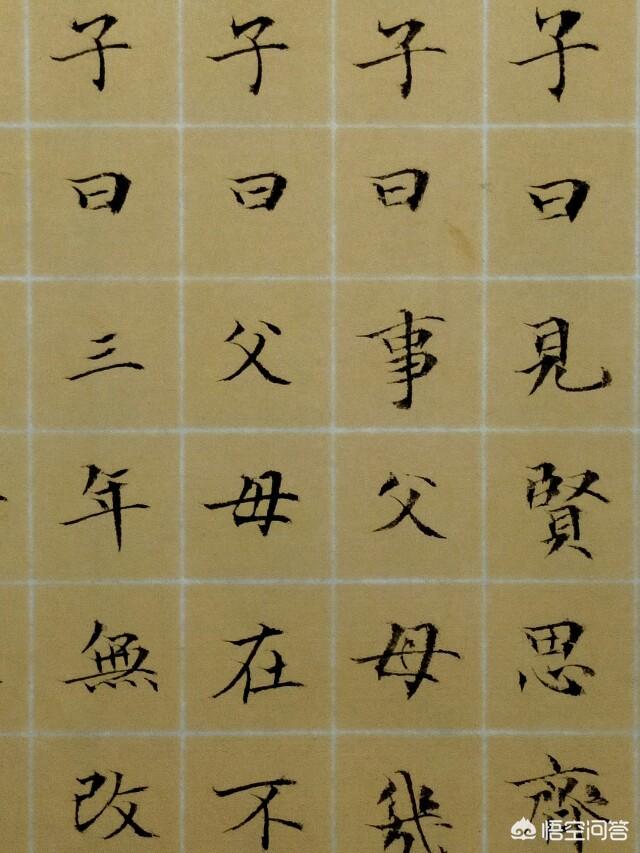 子曰見賢思齊
子曰事父母幾
子曰父母在不
子曰三年無改
悟空问答